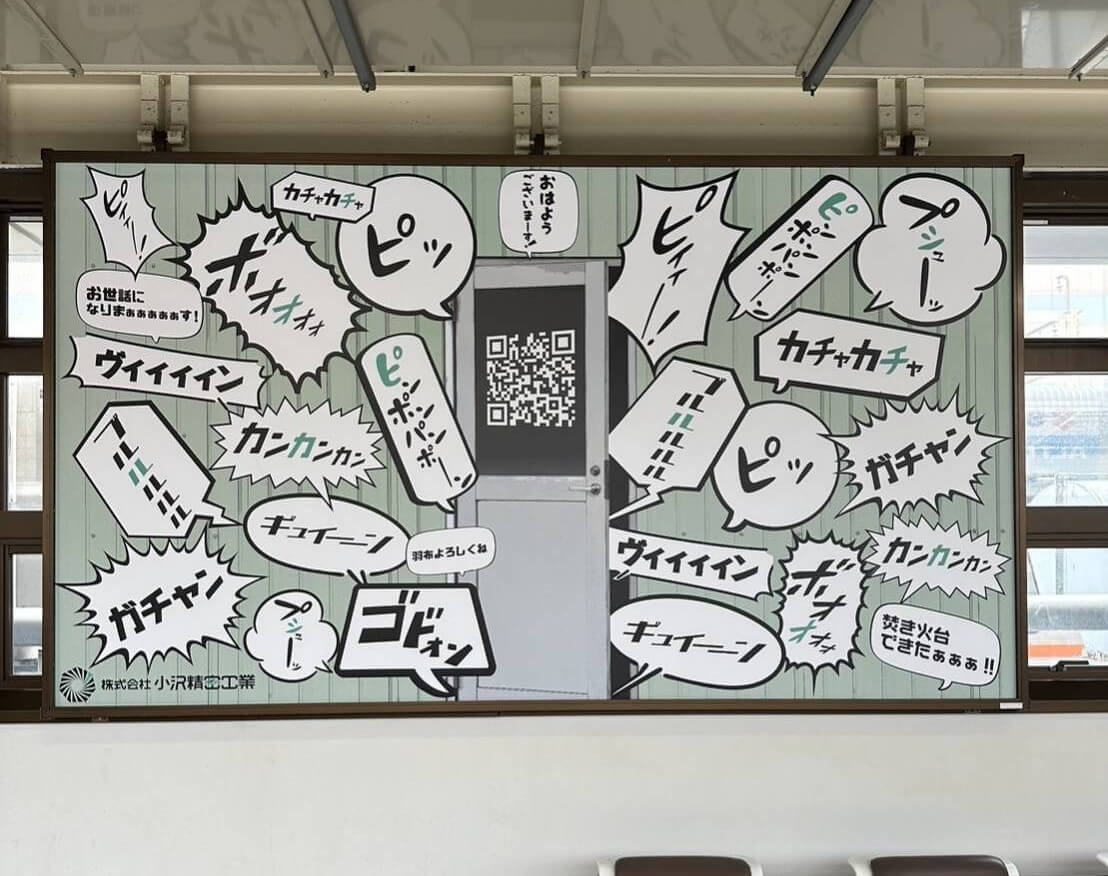 ピィィー!
カチャカチャ
ピッ
おはよう
ございまーす!
ピィィー!
ピンポンパンポーン
プシューッ
お世話に
なりまぁぁぁぁぁす!
ボォォォォォ
ヴィイイイイン
ピンポンパンポーン
カチャカチャ
ブルルルルル
カンカンカン
ブルルルルル
ピッ
ガチャン
ギュイーーン
羽布よろしくね
ヴィイイイイン
ボォォォォォ
カンカンカン
ガチャン
プシューッ
ゴドォン
ギュイーーン
焚き火台
できたぁぁぁ!!
株式会社 小沢精密工業